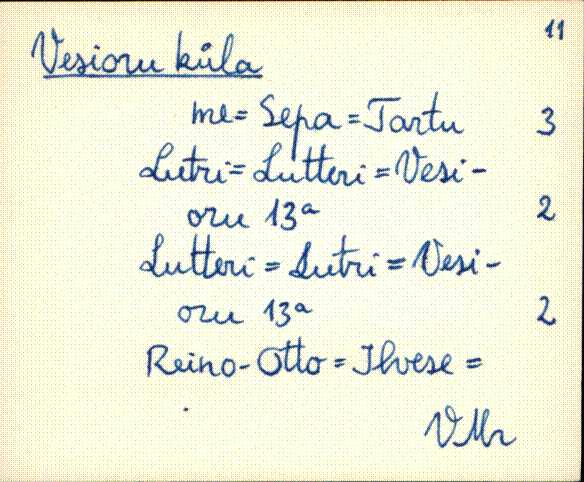 11
Vesioru küla
me = Sepa = Tartu 3
Lutri = Lutteri = Vesi-
oru 13a 2
Lutteri = Lutri = Vesi-
oru 13a 2
Reino-Otto = Ilvese =
VMr